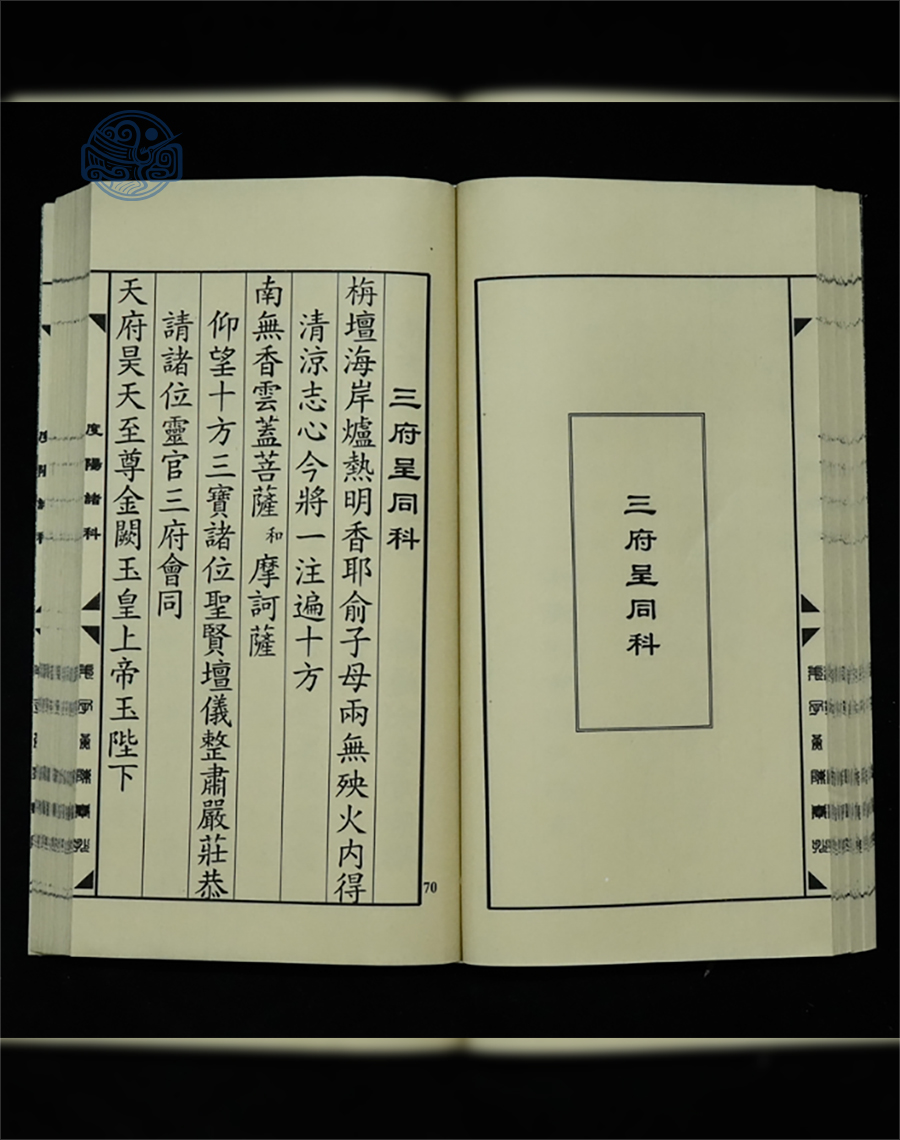 三府呈同科
三府呈同科
栴壇海岸爐熱明香耶俞子母兩無殃火内得
清涼志心今將一注遍十方
南無香雲蓋菩薩和摩訶薩
仰望十方三寶諸位聖賢壇儀整肅嚴莊恭
請諸位靈官三府會同
天府昊天至尊金闕玉皇上帝玉陛下
70
度陽諸科